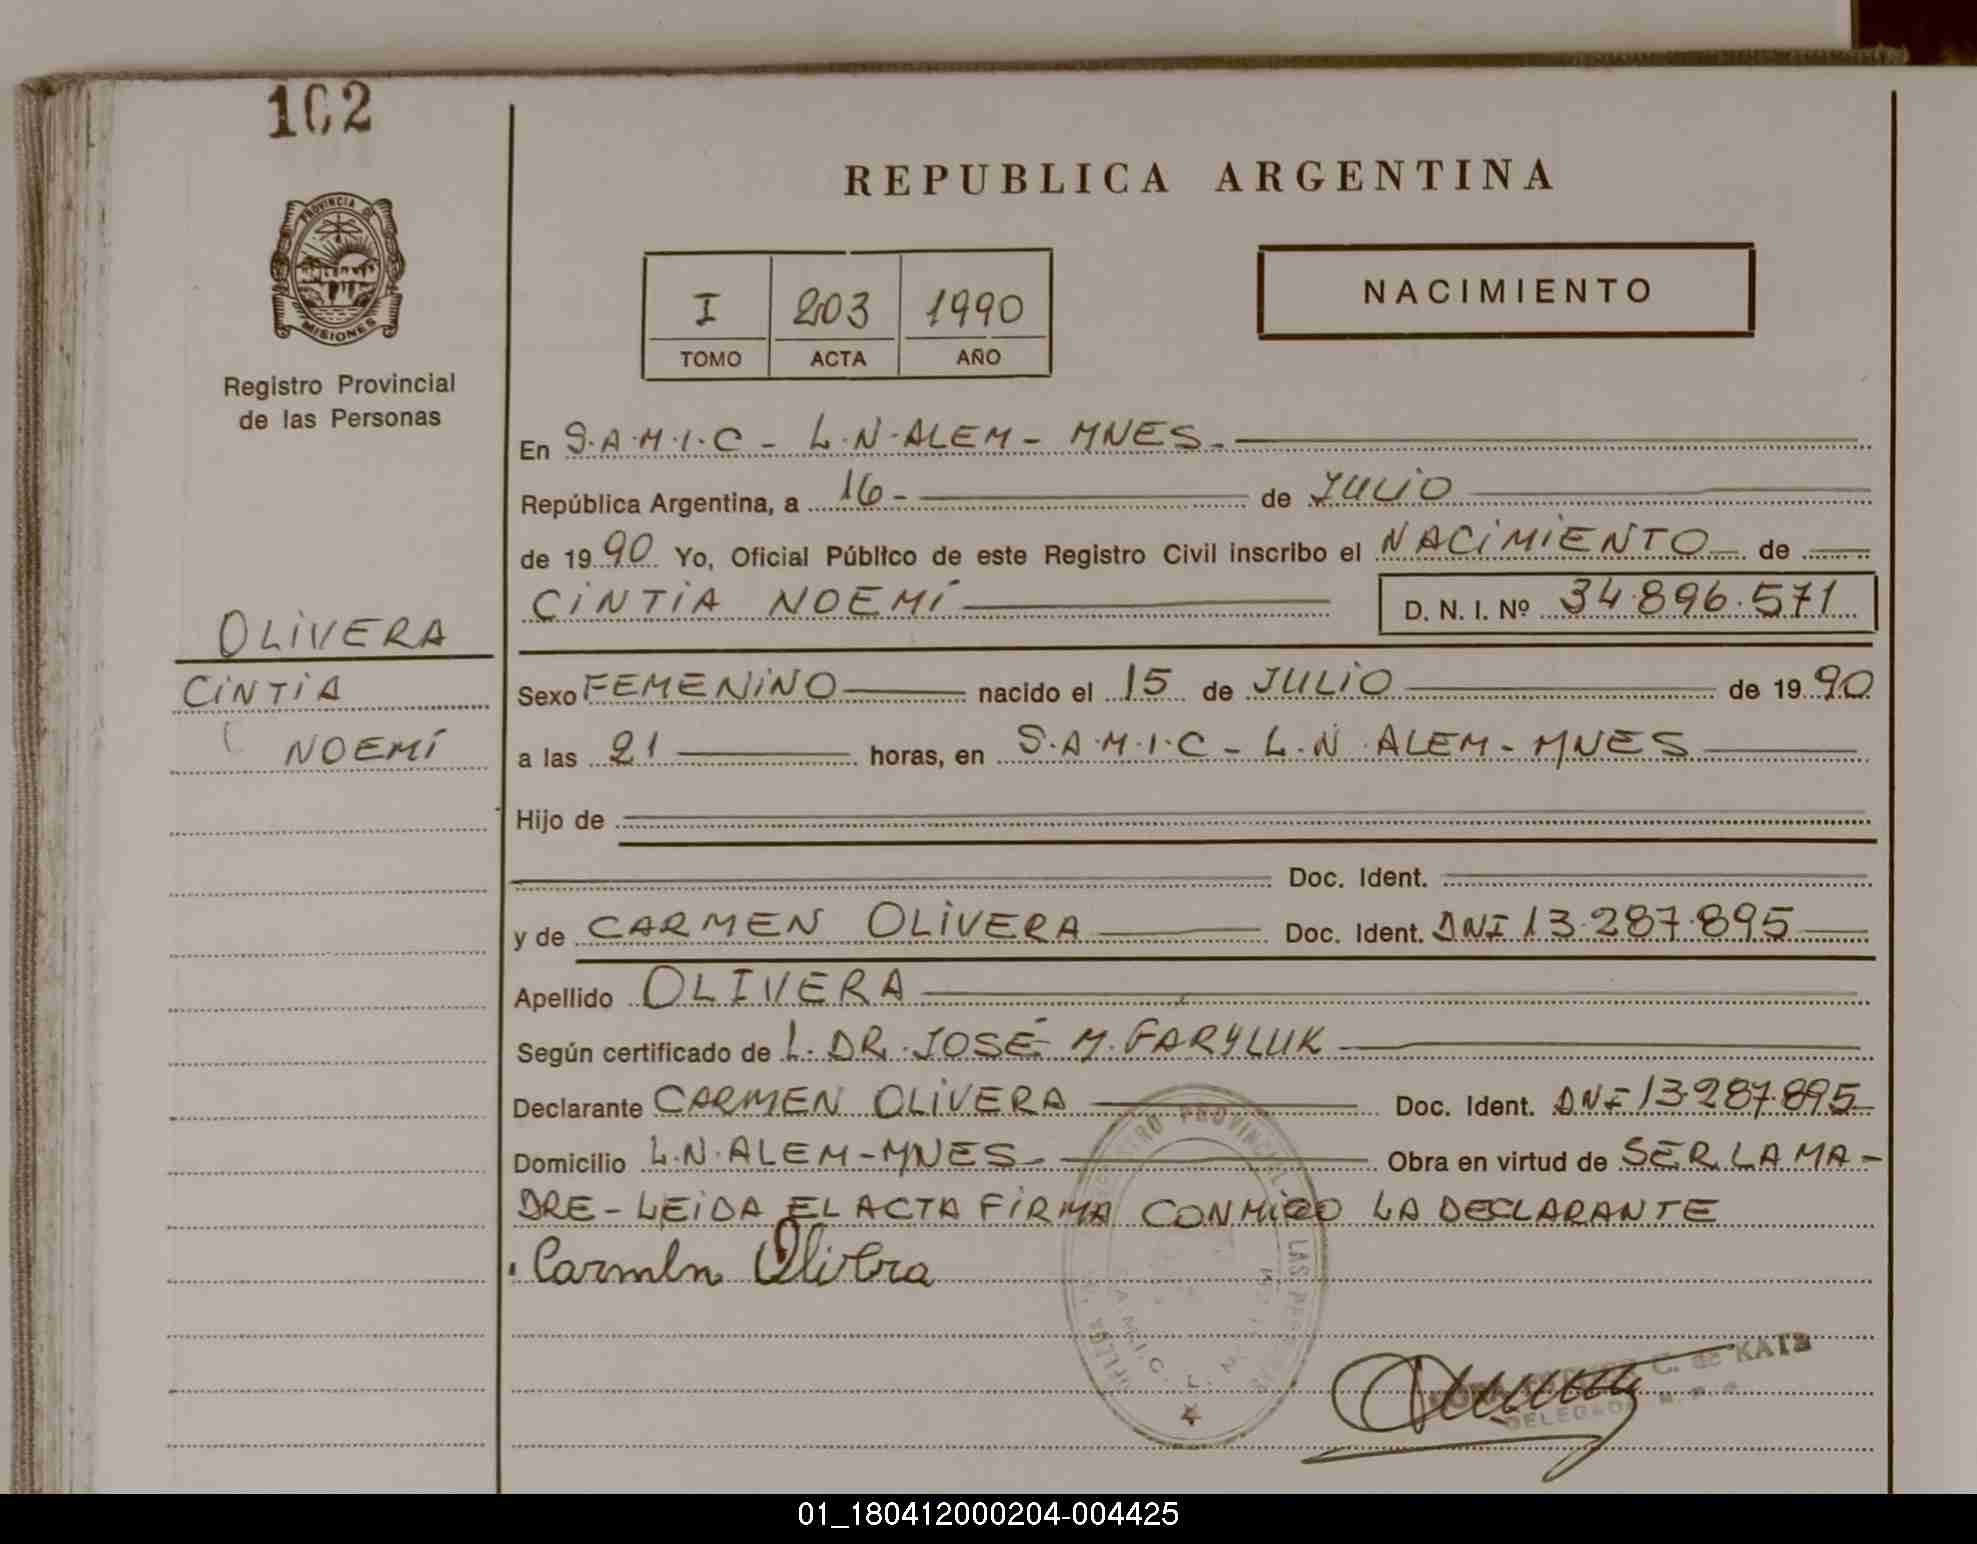 102
REPUBLICA ARGENTINA
PROVINCIA DE
MISIONES
Registro Provincial
de las Personas
I 203 1990
TOMO ACTA AÑO
NACIMIENTO
En S.A.M.I.C - L.N.ALEM - MNES.
República Argentina, a 16 - de JULIO
de 1990 Yo, Oficial Público de este Registro Civil inscribo el NACIMIENTO de
CINTIA NOEMÍ D. N. I. Nº 34.896.571
OLIVERA
CINTIA
NOEMÍ
Sexo FEMENINO nacido el 15 de JULIO de 1990
a las 21 horas, en S.A.M.I.C - L.N. ALEM - MNES
Hijo de
Doc. Ident.
y de CARMEN OLIVERA Doc. Ident. DNI 13.287.895
Apellido OLIVERA
Según certificado de L. DR. JOSÉ M. FARYLUK
Declarante CARMEN OLIVERA Doc. Ident. DNI 13.287.895
Domicilio L.N. ALEM - MNES Obra en virtud de SER LA MA-
DRE - LEIDA EL ACTA FIRMA CONMIGO LA DECLARANTE
Carmen Olivera
REGISTRO PROVINCIAL LAS
S.A.M.I.C. L. N.
C. de KATZ
DELEGADA
01_180412000204-004425